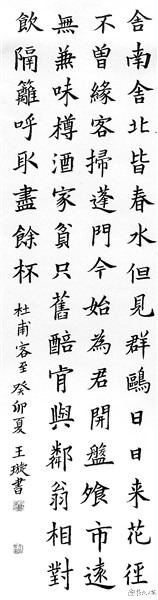 舍南舍北皆春水但見群鷗日日来花徑
不曽緣客掃蓬門今始為君開盤飧市遠
無兼味樽酒家貧只舊醅肯與鄰翁相對
飲隔籬呼取盡餘杯
杜甫客至癸卯夏王璇書